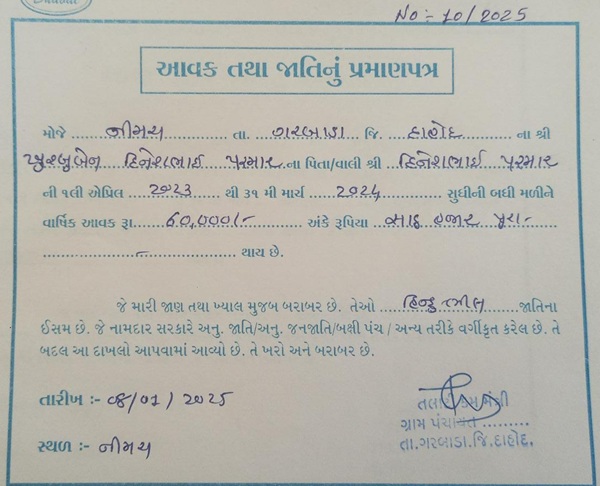 No:- 10/2025
આવક તથા જાતિનું પ્રમાણપત્ર
મોજે નીમચ તા. ગરબાડા જિ. દાહોદ ના શ્રી
ખુશ્બુબેન દિનેશભાઈ પરમાર ના પિતા/વાલી શ્રી દિનેશભાઈ પરમાર
ની ૧લી એપ્રિલ ૨૦૨૩ થી ૩૧ મી માર્ચ ૨૦૨૪ સુધીની બધી મળીને
વાર્ષિક આવક રૂા. 60,000/- અંકે રૂપિયા સાઠ હજાર પુરા-
- થાય છે.
જે મારી જાણ તથા ખ્યાલ મુજબ બરાબર છે. તેઓ હિન્દુ ભીલ જાતિના
ઈસમ છે. જે નામદાર સરકારે અનુ. જાતિ/અનુ. જનજાતિ/બક્ષી પંચ / અન્ય તરીકે વર્ગીકૃત કરેલ છે. તે
બદલ આ દાખલો આપવામાં આવ્યો છે. તે ખરો અને બરાબર છે.
તારીખ :- ०४/01/2025
સ્થળ :- નીમચ
તલાટી કમ મંત્રી
ગ્રામ પંચાયત
તા.ગરબાડા.જિ.દાહોદ.